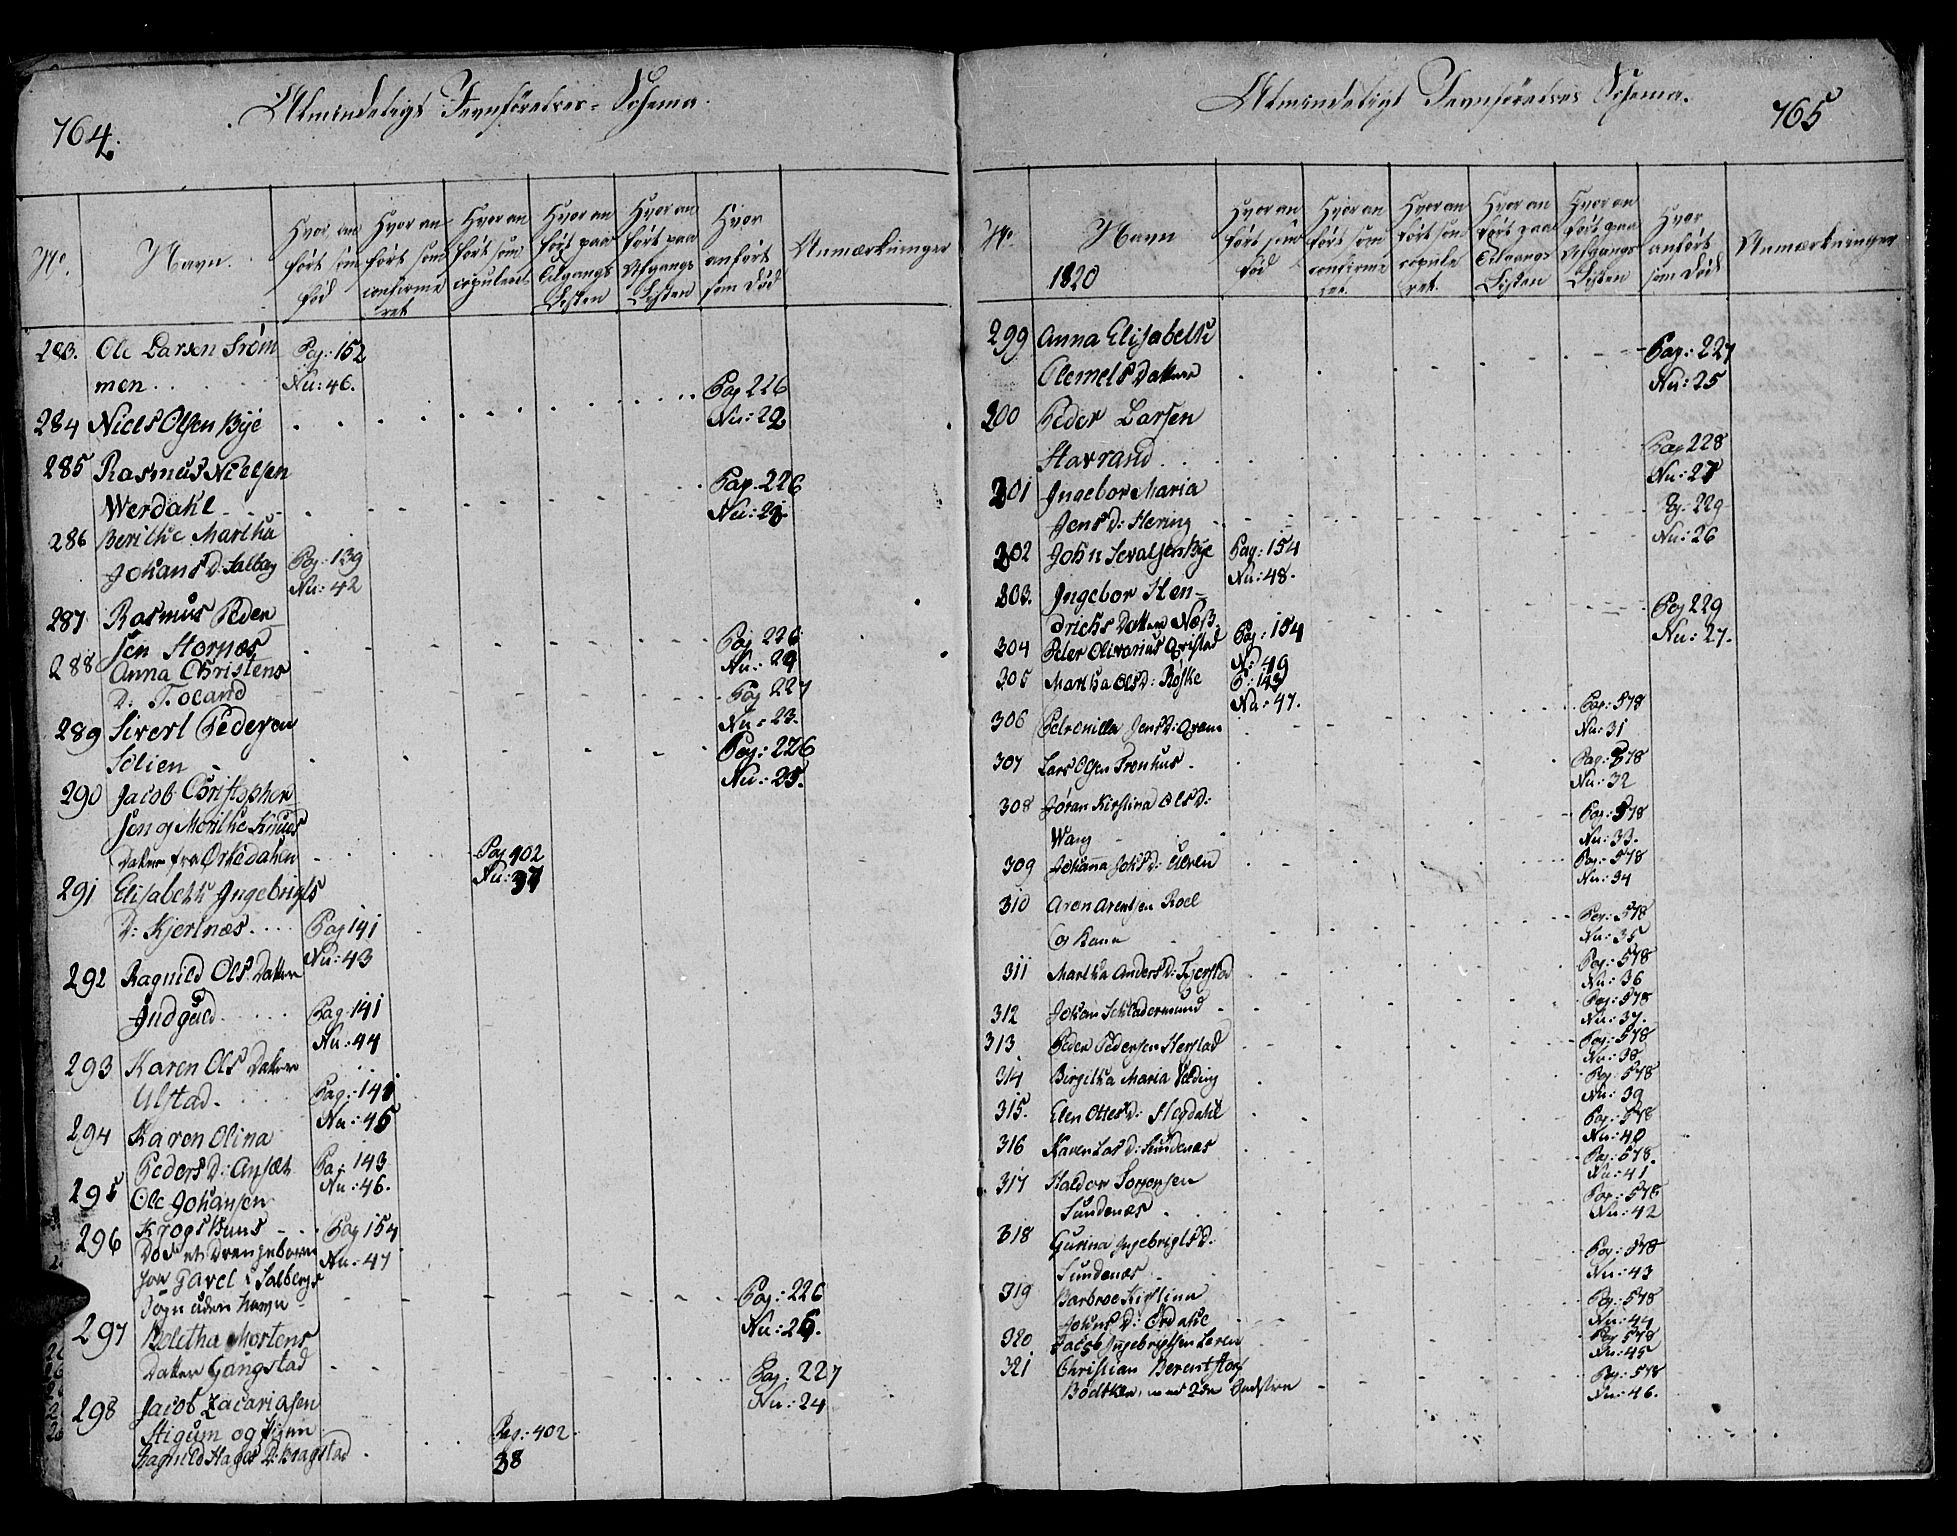 764.
Almindeligt Jevnførelses-Schema.
No.
Navn.
Hvor an
ført som
fød
Hvor an
ført som
confirme
ret
Hvor an
ført som
copuleret
Hvor an
ført paa
Tilgangs
Listen
Hvor an
ført paa
Afgangs
Listen
Hvor
anført
som død
Anmærkninger
283. Ole Larsen Strøm Pag: 152
men Nu: 46.
284 Niels Olsen Bye Pag 226
Nu: 22
285 Rasmus Nielsen Pag. 226
Werdahl Nu: 23
286 Berithe Martha
Johans D: Salbag Pag: 139
Nu: 42
287 Rasmus Peder
sen Hornæs Pag 226
Nu: 24
288 Anna Christens
D: Tocand Pag 227
Nu: 23.
289 Sivert Pedersen
Solien Pag: 226
Nu: 25.
290 Jacob Christopher
sen og Merithe Knuds
Datter fra Ørkedahlen Pag 402
Nu: 37
291 Elisabeth Ingebrigts
D: Kjerlnæs Pag 141
Nu: 43
292 Ragnild Ols Datter
Judguld Pag. 141
Nu: 44
293 Karen Ols Datter
Ulstad. Pag: 141
Nu: 45
294 Karen Olina
Peders D: Pag: 143
Nu: 46.
295 Ole Johansen
Krogshuus Pag 154
Nu: 47
296 Død et Drengebarn
Gavel i Salbergs
Sogn uden Navn Pag: 226
Nu: 26.
297 Beletha Mortens
Datter Gangstad Pag: 227
Nu: 24
298 Jacob Zacariasen
Stigum og Pigen
Ragnild Hages D: Bragstad Pag: 402
38
765
Almindeligt Jevnførelses Schema.
No.
Navn
1820
Hvor an
ført som
fød
Hvor an
ført som
confirme
ret.
Hvor an
ført som
copule
ret.
Hvor an
ført paa
Tilgangs
Listen
Hvor an
ført paa
Afgangs
Listen
Hvor
anført
som død
Anmærkninger
299 Anna Elisabeth
Olemels Datter Pag: 227
Nu: 25
300 Peder Larsen
Havrand Pag 228
Nu: 27
301 Ingebor Maria
Jens D: Hering Pg: 229
Nu: 26
302 John Sevalsen Bye Pag: 154
Nu: 48.
303. Ingebor Hen-
drichs Datter Næss Pag 229
Nu: 27.
304 Peter Olivarius Qvistad Pag: 154
N: 49
305 Martha Ols D: Røske P: 143
Nu: 47.
306 Petronilla Jens D: Qvam Pag: 578
Nu: 31
307 Lars Olsen Tronhus Pag: 578
Nu: 32
308 Joran Kirstina Ols D:
Wang Pag: 578
Nu: 33.
309 Johanna Johs D: Ulven Pag: 578
Nu: 34
310 Aren Arentsen Roel
og Kone Pag: 578
Nu: 35
311 Martha Anders D: Tjerstad Pag: 578
Nu: 36
312 Johan Schladermund Pag: 578
Nu: 37.
313 Peder Pedersen Herstad Pag: 578
Nu: 38
314 Birgitha Maria Pag: 578
Nu: 39
315. Elen Ottes D: Hegdahl Pag: 578
Nu: 40
316 Karen Lars D: Sundenæs Pag: 578.
Nu: 41
317 Haldor Sorensen
Sundenæs Pag: 578
Nu: 42
318 Gurina Ingebrigts D:
Sundenæs Pag: 578
Nu: 43
319 Barbroe Kirstina
Johns D: Ørdahl Pag: 578
Nu: 44
320 Jacob Ingebrigtsen Leren Pag 578
Nu: 45
321 Christian Berent Hoy
Bødtker, med Pag: 578
Nu: 46.